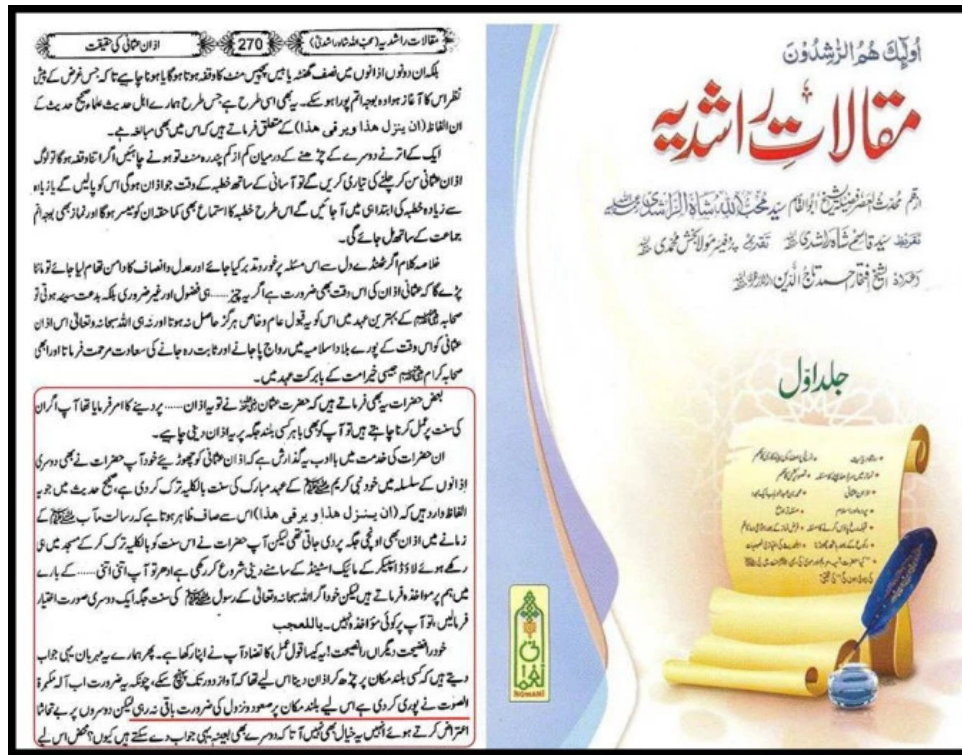 اُولٰٓئِكَ هُمُ الرّٰشِدُوْنَ
مقالاتِ راشدیہ
سید محب اللہ شاہ الراشدی
جلد اوّل
NOMANI
مقالات راشدیہ (محب اللہ شاہ راشدیؒ) 270 اذان عثمانی کی حقیقت
بلکہ ان دونوں اذانوں میں نصف گھنٹہ یا بیس پچیس منٹ کا وقفہ ہوتا ہوگا یا ہونا چاہیے تاکہ جس غرض کے پیش
نظر اس کا آغاز ہوا وہ بوجہ اتم پورا ہو سکے۔ یہ بھی اسی طرح ہے جس طرح ہمارے اہل حدیث علماء صحیح حدیث کے
ان الفاظ (ان ينزل هذا ويرقى هذا) کے متعلق فرماتے ہیں کہ اس میں بھی مبالغہ ہے۔
ایک کے اترنے دوسرے کے چڑھنے کے درمیان کم از کم پندرہ منٹ تو ہونے چاہئیں اگر اتنا وقفہ ہوگا تو لوگ
اذان عثمانی سن کر چلنے کی تیاری کریں گے تو آسانی کے ساتھ خطبہ کے وقت جو اذان ہوگی اس کو پالیں گے یا زیادہ
سے زیادہ خطبہ کی ابتدا ہی میں آجائیں گے اس طرح خطبہ کا استماع بھی کما حقہ ان کو میسر ہوگا اور نماز بھی بوجہ اتم
جماعت کے ساتھ مل جائے گی۔
خلاصہ کلام اگر ٹھنڈے دل سے اس مسئلہ پر غور و تدبر کیا جائے اور عدل و انصاف کا دامن تھام لیا جائے تو ماننا
پڑے گا کہ عثمانی اذان کی اس وقت بھی ضرورت ہے اگر یہ چیز ...... ہی فضول اور غیر ضروری بلکہ بدعت سیئہ ہوتی تو
صحابہ رضی اللہ عنہم کے بہترین عہد میں اس کو یہ قبول عام و خاص ہرگز حاصل نہ ہوتا اور نہ ہی اللہ سبحانہ وتعالیٰ اس اذان
عثمانی کو اس وقت کے پورے بلاد اسلامیہ میں رواج پا جانے اور ثابت رہ جانے کی سعادت مرحمت فرماتا اور ابھی
صحابہ کرام رضی اللہ عنہم جیسی خیر امت کے بابرکت عہد میں۔
بعض حضرات یہ بھی فرماتے ہیں کہ حضرت عثمان رضی اللہ عنہ نے تو یہ اذان ...... پر دینے کا امر فرمایا تھا آپ اگر ان
کی سنت پر عمل کرنا چاہتے ہیں تو آپ کو بھی باہر کسی بلند جگہ پر یہ اذان دینی چاہیے۔
ان حضرات کی خدمت میں با ادب یہ گذارش ہے کہ اذان عثمانی کو چھوڑیئے خود آپ حضرات نے بھی دوسری
اذانوں کے سلسلہ میں خود نبی کریم ﷺ کے عہد مبارک کی سنت بالکلیہ ترک کر دی ہے، صحیح حدیث میں جو یہ
الفاظ وارد ہیں کہ (ان ينزل هذا و يرقى هذا) اس سے صاف ظاہر ہوتا ہے کہ رسالت مآب ﷺ کے
زمانے میں اذان بھی اونچی جگہ پر دی جاتی تھی لیکن آپ حضرات نے اس سنت کو بالکلیہ ترک کر کے مسجد میں ہی
رکھے ہوئے لاؤڈ اسپیکر کے مائیک اسٹینڈ کے سامنے دینی شروع کر رکھی ہے ادھر تو آپ اتنی اتنی ...... کے بارے
میں ہم پر مواخذہ فرماتے ہیں لیکن خود اگر اللہ سبحانہ وتعالیٰ کے رسول ﷺ کی سنت جگہ ایک دوسری صورت اختیار
فرمالیں، تو آپ پر کوئی مؤاخذہ نہیں۔ یا للعجب
خود را فضیحت دیگراں را نصیحت! یہ کیسا قول عمل کا تضاد آپ نے اپنا رکھا ہے۔ پھر ہمارے یہ مہربان یہی جواب
دیتے ہیں کہ کسی بلند مکان پر چڑھ کر اذان دینا اس لیے تھا کہ آواز دور تک پہنچ سکے، چونکہ یہ ضرورت اب آلہ مکبرۃ
الصوت نے پوری کر دی ہے اس لیے بلند مکان پر صعود ونزول کی ضرورت باقی نہ رہی لیکن دوسروں پر بے تحاشا
اعتراض کرتے ہوئے انہیں یہ خیال بھی نہیں آتا کہ دوسرے بھی بعینہ یہی جواب دے سکتے ہیں کیوں؟ محض اس لیے